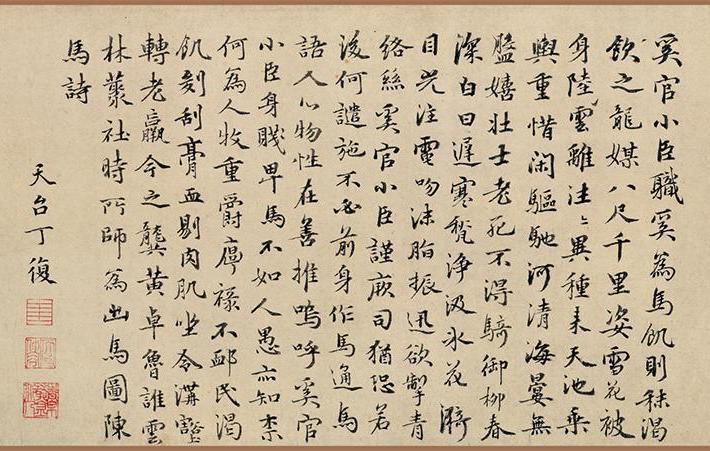 奚官小臣職奚為馬飢則秣渴
飲之龍媒八尺千里姿雪花被
身陸雲離往〻異種来天池乗
輿重惜閑驅馳河清海晏無
盤嬉壮士老死不得騎御柳春
深白日遲寒甃浄汲氷花漪
目光注電吻沫脂振迅欲掣青
絡絲奚官小臣謹厥司猶恐若
後何譴施不必前身作馬通馬
語人心物性在善推嗚呼奚官
小臣身賤卑馬不如人愚亦知柰
何為人牧重爵廩禄不邺民渴
飢刻刮膏血剔肉肌坐令溝壑
轉老羸今之龔黄卓魯誰雲
林叢社時所師為出馬圖陳
馬詩
天台丁復